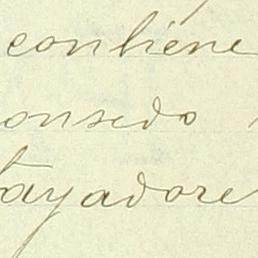 contiene
onsedo
tayadore